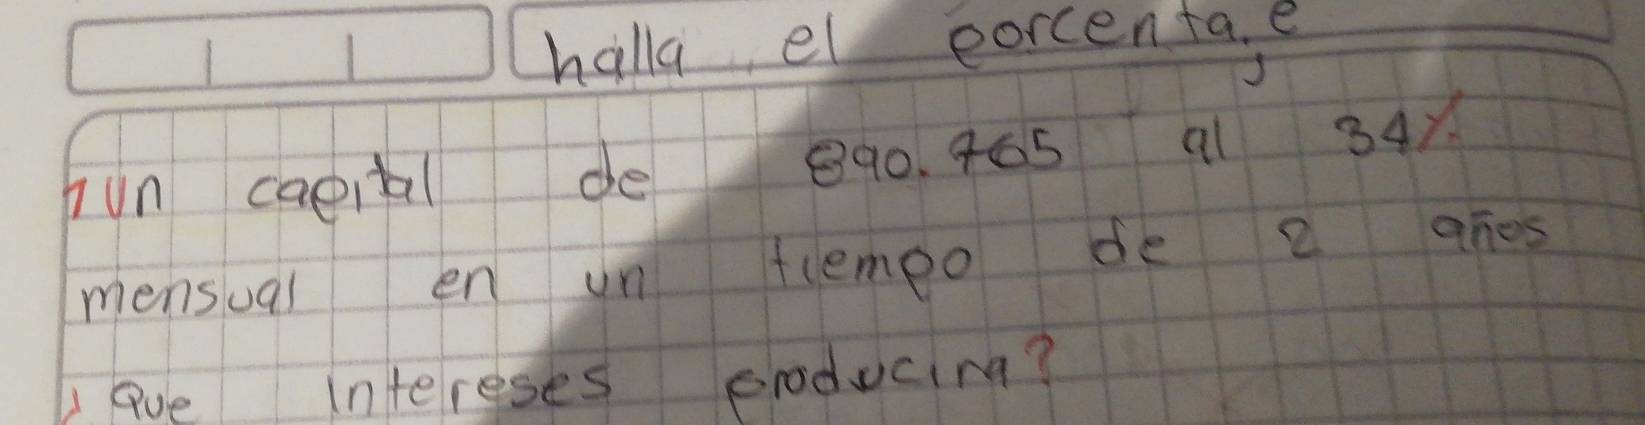 halla el porcentaje
1 un capital de 890.765 al 34%
mensual en un tiempo de 2 años
¿ Que intereses producira?